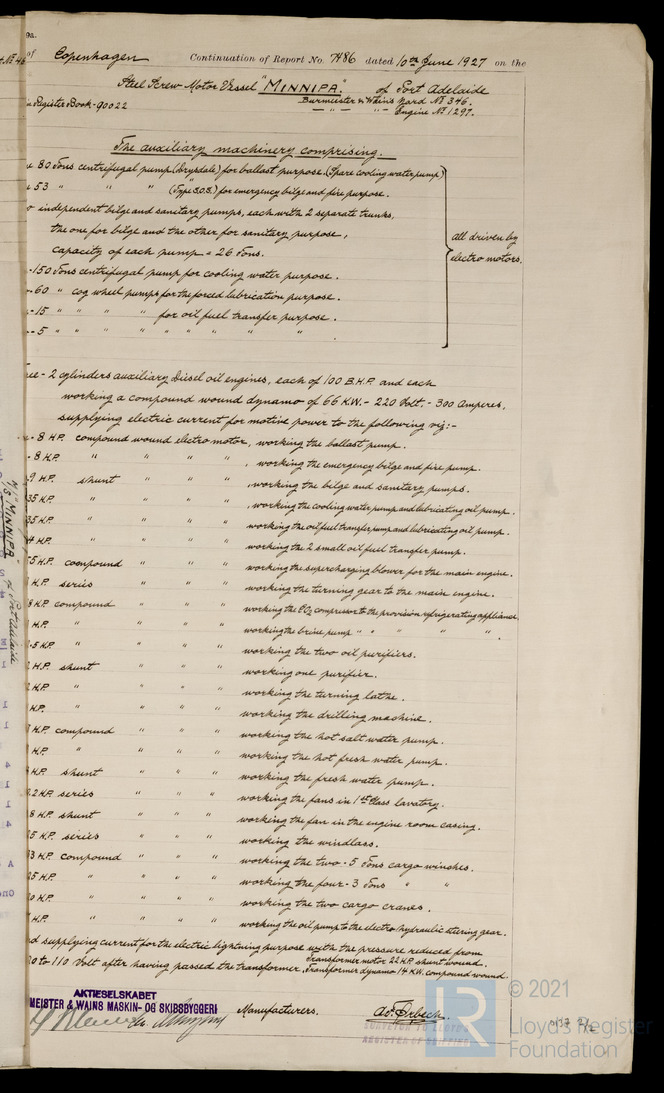 9a.
of Copenhagen Continuation of Report No. 7486 dated 10th June 1927 on the
Steel Screw Motor Vessel "MINNIPA" of Port Adelaide
Register Book - 90022 Burmeister & Wain's Yard No 346.
" " " Engine No 1297.
The auxiliary machinery comprising.
80 Tons centrifugal pump (Drysdale) for ballast purpose. (Spare cooling water pump)
53 " " " (Type S.O.S.) for emergency bilge and fire purpose.
independent bilge and sanitary pumps, each with 2 separate trunks,
the one for bilge and the other for sanitary purpose,
capacity of each pump = 26 Tons.
all driven by
electro motors.
- 150 Tons centrifugal pump for cooling water purpose.
- 60 " cog wheel pumps for the forced lubrication purpose.
- 15 " " " " for oil fuel transfer purpose.
- 5 " " " " " " " " .
- 2 cylinders auxiliary Diesel oil engines, each of 100 B.H.P. and each
working a compound wound dynamo of 66 K.W. - 220 Volt. - 300 Amperes,
supplying electric current for motive power to the following viz:-
- 8 H.P. compound wound electro motor, working the ballast pump.
- 8 H.P. " " " " , working the emergency bilge and fire pump.
9 H.P. shunt " " " , working the bilge and sanitary pumps.
35 H.P. " " " " , working the cooling water pump and lubricating oil pump.
35 H.P. " " " " working the oil fuel transfer pump and lubricating oil pump.
4 H.P. " " " " working the 2 small oil fuel transfer pump.
5 H.P. compound " " " working the supercharging blower for the main engine.
H.P. series " " " working the turning gear to the main engine.
8 H.P. compound " " " working the CO2 compressor to the provision refrigerating appliance.
H.P. " " " " working the brine pump " " " " .
.5 H.P. " " " " working the two oil purifiers.
H.P. shunt " " " working one purifier.
H.P. " " " " working the turning lathe.
H.P. " " " " working the drilling machine.
H.P. compound " " " working the hot salt water pump.
H.P. " " " " working the hot fresh water pump.
H.P. shunt " " " working the fresh water pump.
.2 H.P. series " " " working the fans in 1st Class lavatory.
8 H.P. shunt " " " working the fan in the engine room casing.
25 H.P. series " " " working the windlass.
33 H.P. compound " " " working the two - 5 Tons cargo winches.
25 H.P. " " " " working the four - 3 Tons " "
20 H.P. " " " " working the two cargo cranes.
H.P. " " " " working the oil pump to the electro hydraulic steering gear.
supplying current for the electric lightning purpose with the pressure reduced from
to 110 Volt after having passed the transformer. Transformer motor 22 H.P. shunt wound.
Transformer dynamo 14 K.W. compound wound.
AKTIESELSKABET
MEISTER & WAINS MASKIN- OG SKIBSBYGGERI Manufacturers. Ad. Ørbech.
SURVEYOR TO LLOYD'S
REGISTER OF SHIPPING
M/S "MINNIPA" of Port Adelaide
LR
© 2021
Lloyd's Register
Foundation